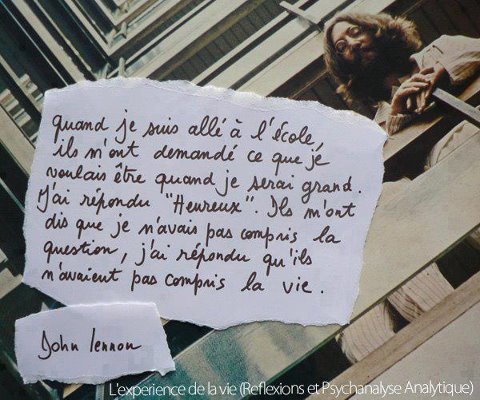 quand je suis allé à l'école,
ils m'ont demandé ce que je
voulais être quand je serai grand.
J'ai répondu "Heureux". Ils m'ont
dis que je n'avais pas compris la
question, j'ai répondu qu'ils
n'avaient pas compris la vie.
John lennon
L'experience de la vie (Reflexions et Psychanalyse Analytique)